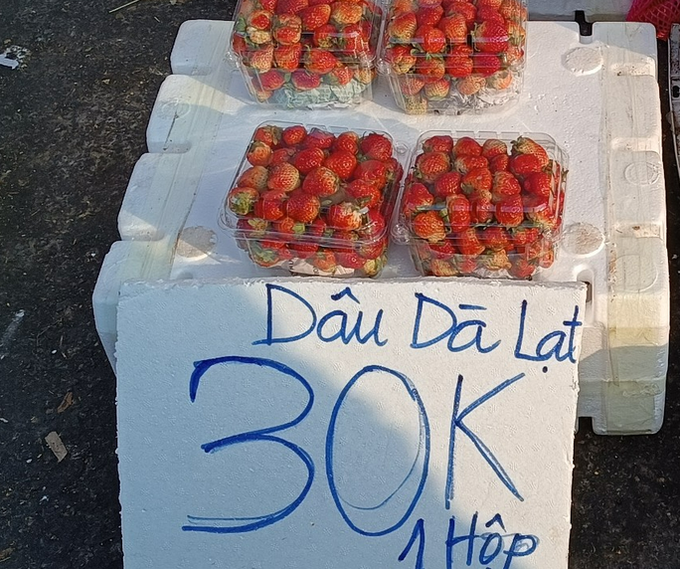 Dâu Dà Lạt
30K
1 Hộp